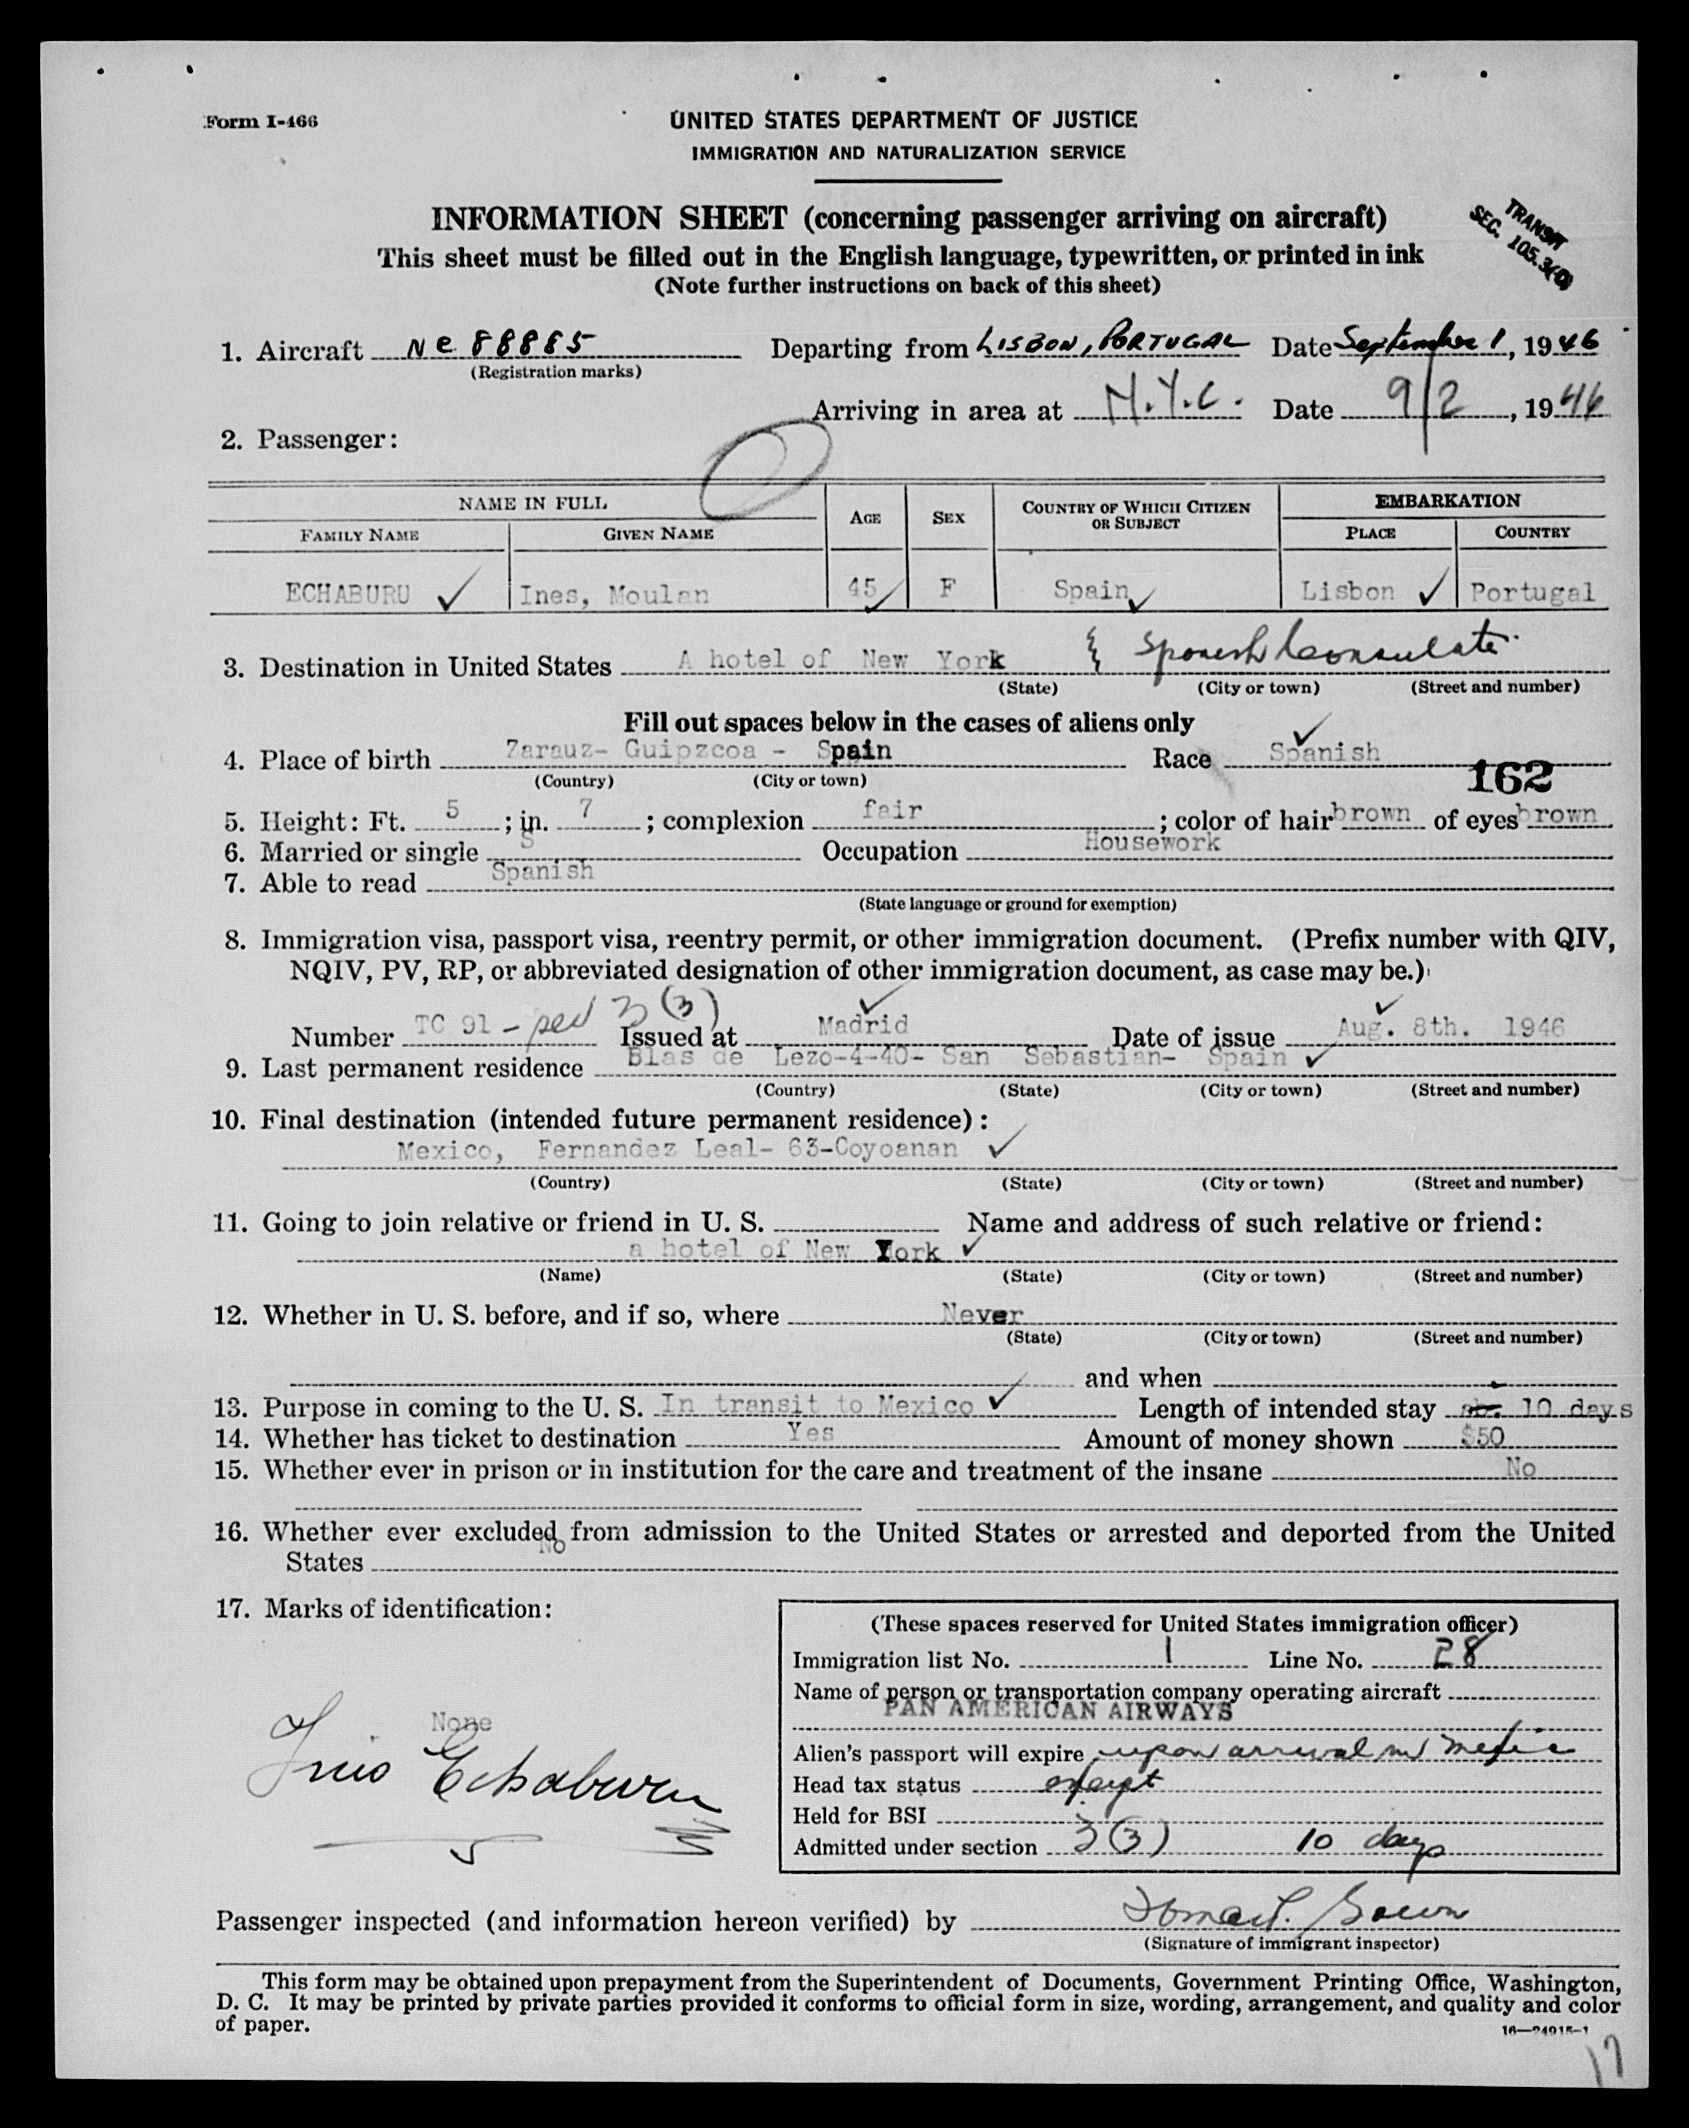 Form I-466
UNITED STATES DEPARTMENT OF JUSTICE
IMMIGRATION AND NATURALIZATION SERVICE
INFORMATION SHEET (concerning passenger arriving on aircraft)
TRANSIT
SEC. 105.3(D)
This sheet must be filled out in the English language, typewritten, or printed in ink
(Note further instructions on back of this sheet)
1. Aircraft NC 88885 Departing from LISBON, PORTUGAL Date September 1, 1946
(Registration marks)
Arriving in area at N.Y.C. Date 9/2, 1946
2. Passenger:
NAME IN FULL AGE SEX COUNTRY OF WHICH CITIZEN OR SUBJECT EMBARKATION
FAMILY NAME GIVEN NAME PLACE COUNTRY
ECHABURU ✓ Ines, Moulan 45 ✓ F Spain ✓ Lisbon ✓ Portugal
3. Destination in United States A hotel of New York Spanish Consulate
(State) (City or town) (Street and number)
Fill out spaces below in the cases of aliens only
4. Place of birth Zarauz- Guipzcoa - Spain Race Spanish ✓
(Country) (City or town)
162
5. Height: Ft. 5 ; in. 7 ; complexion fair ; color of hair brown of eyes brown
6. Married or single S Occupation Housework
7. Able to read Spanish
(State language or ground for exemption)
8. Immigration visa, passport visa, reentry permit, or other immigration document. (Prefix number with QIV,
NQIV, PV, RP, or abbreviated designation of other immigration document, as case may be.)
Number TC 91 - 3(3) Issued at Madrid ✓ Date of issue Aug. 8th. 1946 ✓
9. Last permanent residence Blas de Lezo-4-40- San Sebastian- Spain ✓
(Country) (State) (City or town) (Street and number)
10. Final destination (intended future permanent residence):
Mexico, Fernandez Leal- 63-Coyoanan ✓
(Country) (State) (City or town) (Street and number)
11. Going to join relative or friend in U. S. Name and address of such relative or friend:
a hotel of New York ✓
(Name) (State) (City or town) (Street and number)
12. Whether in U. S. before, and if so, where Never
(State) (City or town) (Street and number)
and when
13. Purpose in coming to the U. S. In transit to Mexico ✓ Length of intended stay 10 days
14. Whether has ticket to destination Yes Amount of money shown $50
15. Whether ever in prison or in institution for the care and treatment of the insane No
16. Whether ever excluded from admission to the United States or arrested and deported from the United
States No
17. Marks of identification:
None
Ines Echaburu
(These spaces reserved for United States immigration officer)
Immigration list No. 1 Line No. 28
Name of person or transportation company operating aircraft
PAN AMERICAN AIRWAYS
Alien's passport will expire upon arrival in Mexico
Head tax status exempt
Held for BSI
Admitted under section 3(3) 10 days
Passenger inspected (and information hereon verified) by
(Signature of immigrant inspector)
This form may be obtained upon prepayment from the Superintendent of Documents, Government Printing Office, Washington,
D. C. It may be printed by private parties provided it conforms to official form in size, wording, arrangement, and quality and color
of paper.
16—24915-1
17